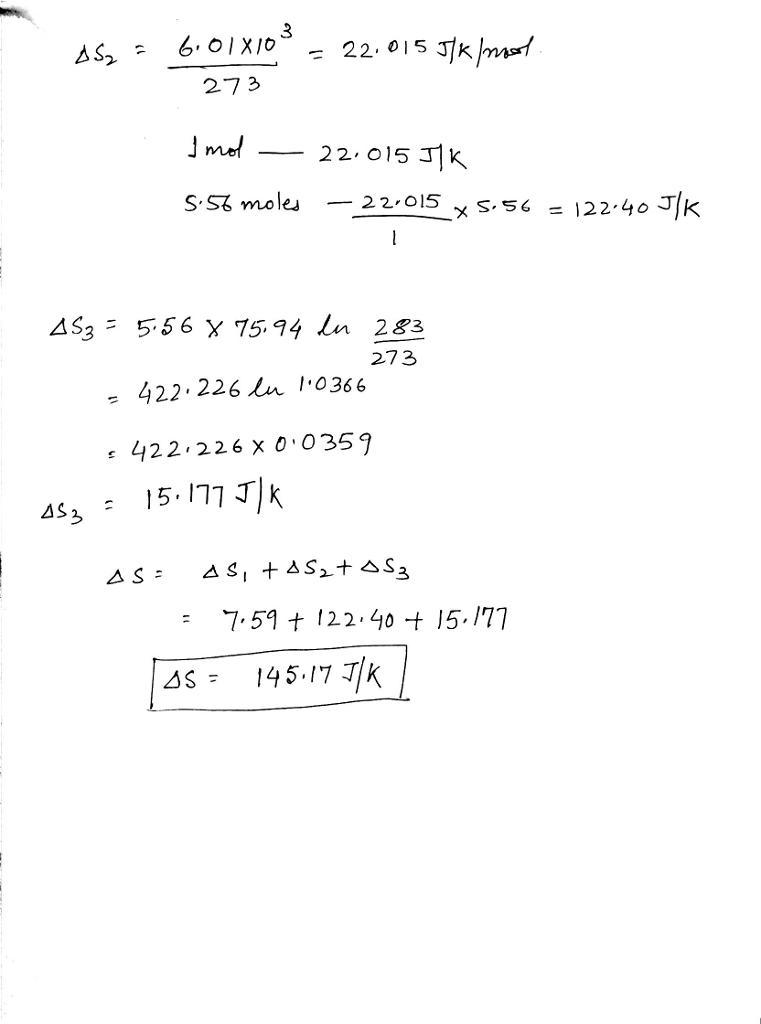 ΔS₂ = 6.01X10³ / 273 = 22.015 J/K/mol.
1 mol — 22.015 J/K
5.56 moles — 22.015 / 1 x 5.56 = 122.40 J/K
ΔS₃ = 5.56 X 75.94 ln 283 / 273
= 422.226 ln 1.0366
= 422.226 X 0.0359
ΔS₃ = 15.177 J/K
ΔS = ΔS₁ + ΔS₂ + ΔS₃
= 7.59 + 122.40 + 15.177
ΔS = 145.17 J/K